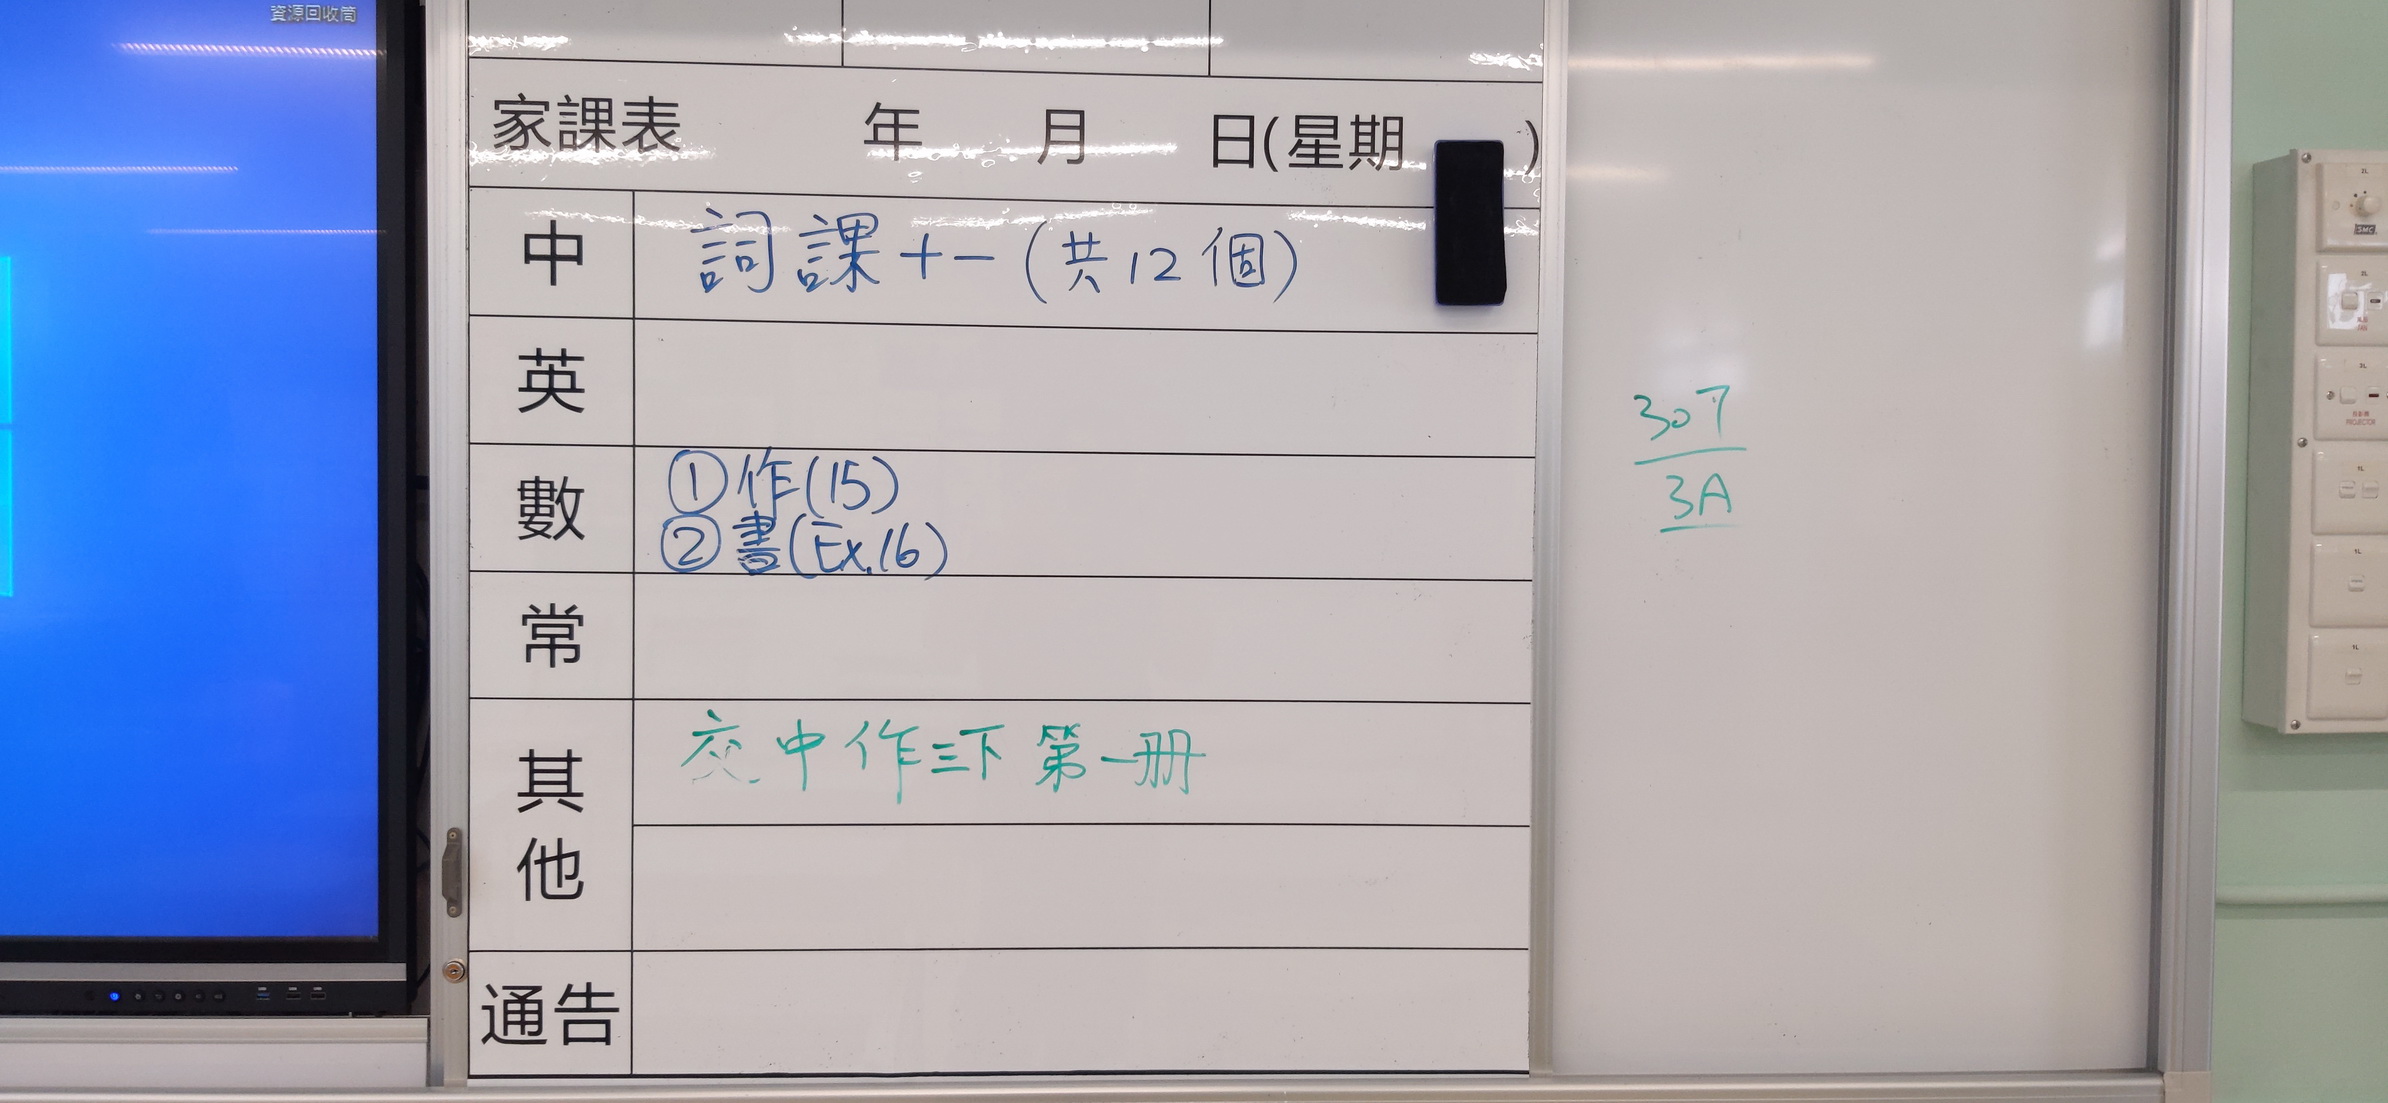 資源回收筒
家課表 年 月 日(星期 )
中 詞課十一(共12個)
英
數 ①作(15)
②書(Ex.16)
常
其他 交中作三下第一册
通告
307
3A
2L
SMC
2L
3L
PROJECTOR
1L
1L
1L